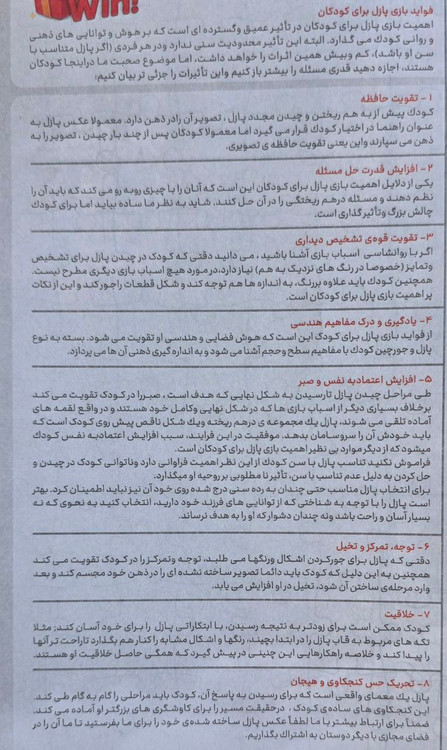 Win!
فواید بازی پازل برای کودکان
اهمیت بازی پازل برای کودکان در تأثیر عمیق وگسترده ای است که بر هوش و توانایی های ذهنی
و روانی کودک می گذارد. البته این تأثیر محدودیت سنی ندارد ودر هر فردی (اگر پازل متناسب با
سن او باشد)، کم وبیش همین اثرات را خواهد داشت، اما موضوع صحبت ما دراینجا کودکان
هستند، اجازه دهید قدری مسئله را بیشتر باز کنیم واین تأثیرات را جزئی تر بیان کنیم:
۱- تقویت حافظه
کودک پیش از به هم ریختن و چیدن مجدد پازل ، تصویر آن رادر ذهن دارد. معمولا عکس پازل به
عنوان راهنما در اختیار کودک قرار می گیرد اما معمولا کودکان پس از چند بار چیدن ، تصویر را به
ذهن می سپارند واین یعنی تقویت حافظه ی تصویری.
۲- افزایش قدرت حل مسئله
یکی از دلایل اهمیت بازی پازل برای کودکان این است که آنان را با چیزی روبه رو می کند که باید آن را
نظم دهند و مسئله درهم ریختگی را در آن حل کنند. شاید به نظر ما ساده بیاید اما برای کودک
چالش بزرگ وتأثیر گذاری است.
۳- تقویت قوه‌ی تشخیص دیداری
اگر با روانشناسی اسباب بازی آشنا باشید ، می دانید دقتی که کودک در چیدن پازل برای تشخیص
وتمایز (خصوصا در رنگ های نزدیک به هم) نیاز دارد،در مورد هیچ اسباب بازی دیگری مطرح نیست.
همچنین کودک باید علاوه بررنگ، به اندازه ها هم توجه کند و شکل قطعات راجور کند و این از نکات
پر اهمیت بازی پازل برای کودکان است.
۴- یادگیری و درک مفاهیم هندسی
از فواید بازی پازل برای کودک این است که هوش فضایی و هندسی او تقویت می شود. بسته به نوع
پازل و جورچین کودک با مفاهیم سطح وحجم آشنا می شود و به اندازه گیری ذهنی آن ها می پردازد.
۵- افزایش اعتمادبه نفس و صبر
طی مراحل چیدن پازل تارسیدن به شکل نهایی که هدف است ، صبررا در کودک تقویت می کند
برخلاف بسیاری دیگر از اسباب بازی ها که در شکل نهایی وکامل خود هستند و در واقع لقمه های
آماده تلقی می شوند، پازل یک مجموعه ی درهم ریخته ویک شکل ناقص پیش روی کودک است که
باید خودش آن را سروسامان بدهد. موفقیت در این فرایند، سبب افزایش اعتمادبه نفس کودک
میشود که از دیگر موارد بی نظیر اهمیت بازی پازل برای کودکان است.
فراموش نکنید تناسب پازل با سن کودک از این نظر اهمیت فراوانی دارد وناتوانی کودک در چیدن و
حل کردن به دلیل عدم تناسب با سن، تأثیر نا مطلوبی بر روحیه او میگذارد.
برای انتخاب پازل مناسب حتی چندان به رده سنی درج شده روی خود آن نیز نباید اطمینان کرد. بهتر
است پازل را با توجه به شناختی که از توانایی های فرزند خود دارید، انتخاب کنید به نحوی که نه
بسیار آسان و راحت باشد ونه چندان دشوار که او را به هدف نرساند.
۶- توجه، تمرکز و تخیل
دقتی که پازل برای جورکردن اشکال ورنگها می طلبد، توجه وتمرکز را در کودک تقویت می کند
همچنین به این دلیل که کودک باید دائما تصویر ساخته نشده ای را در ذهن خود مجسم کند و بعد
وارد مرحله‌ی ساختن آن شود، تخیل در او افزایش می یابد.
۷- خلاقیت
کودک ممکن است برای زودتر به نتیجه رسیدن، با ابتکاراتی پازل را برای خود آسان کند: مثلا
تکه های مربوط به قاب پازل را در ابتدا بچیند، رنگها و اشکال مشابه را کنار هم بگذارد تاراحت تر آنها
را پیدا کند و خلاصه راهکارهایی این چنینی در پیش گیرد که همگی حاصل خلاقیت او هستند
۸- تحریک حس کنجکاوی و هیجان
پازل یک معمای واقعی است که برای رسیدن به پاسخ آن، کودک باید مراحلی را گام به گام طی کند.
این کنجکاوی های ساده‌ی کودک ، درحقیقت مسیر را برای کاوشگری های بزرگتر او آماده می کند.
ضمناً برای ارتباط بیشتر با ما لطفاً عکس پازل ساخته شده‌ی خود را برای ما بفرستید تا ما آن را در
فضای مجازی با دیگر دوستان به اشتراک بگذاریم.